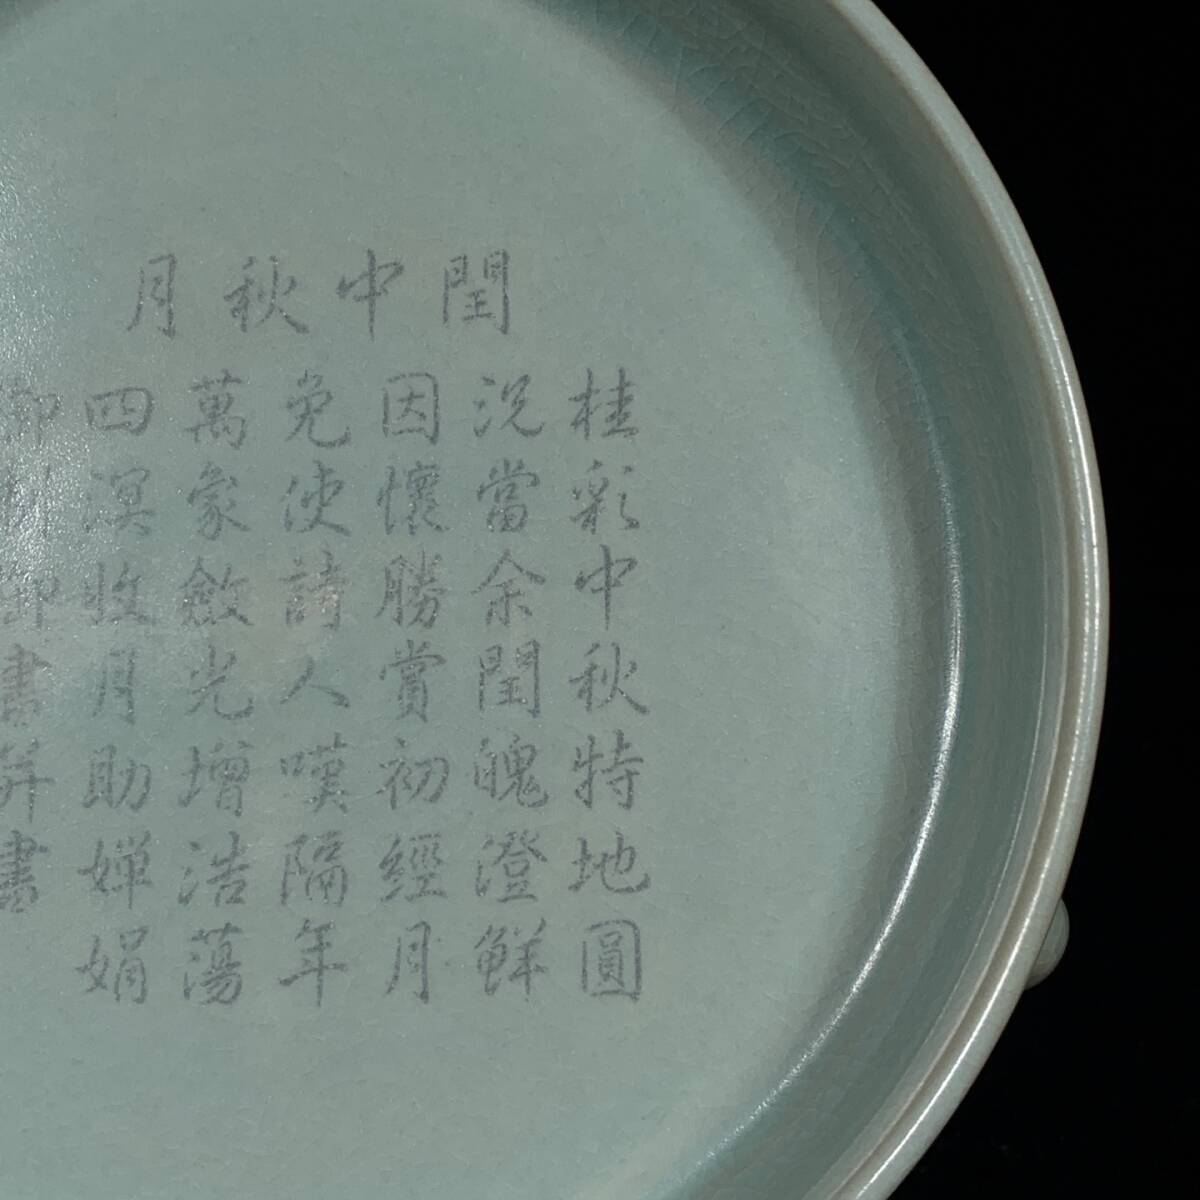 閏中秋月
桂彩中秋特地圓
況當余閏魄澄鮮
因懷勝賞初經月
免使詩人嘆隔年
萬象斂光增浩蕩
四溟收月助嬋娟
書并書